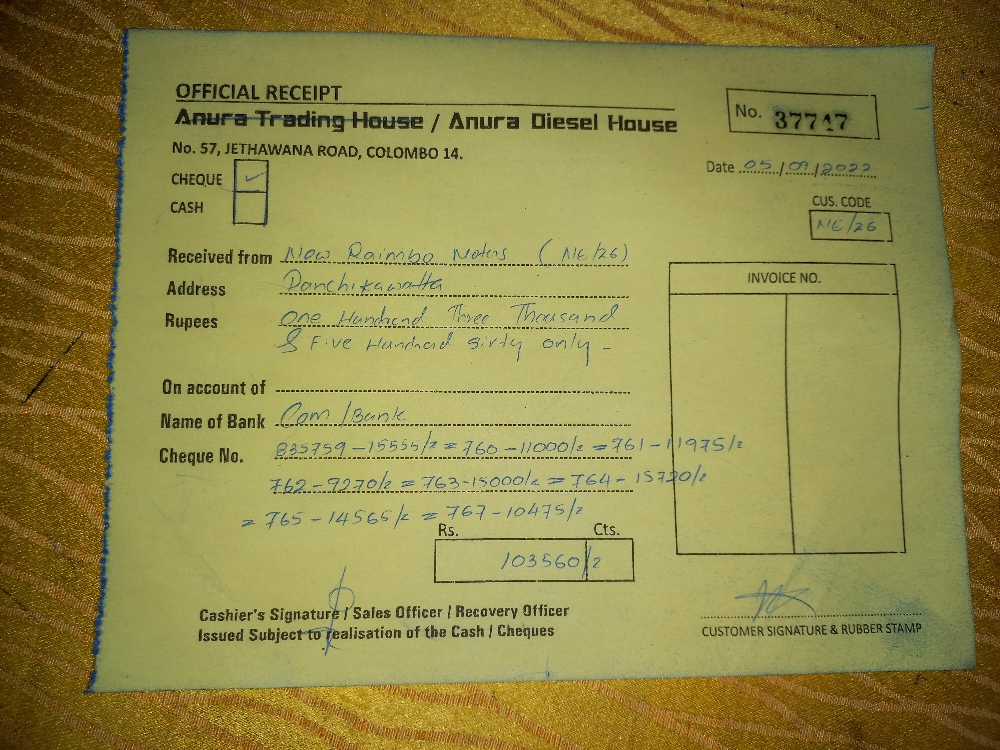 OFFICIAL RECEIPT
Anura Trading House / Anura Diesel House
No. 37747
No. 57, JETHAWANA ROAD, COLOMBO 14.
Date 05/09/2022
CHEQUE ✓
CASH
CUS. CODE
NE/26
Received from New Raimbo Motors (NE/26)
Address Panchikawatta
Rupees One Hundred Three Thousand
& Five Hundred Sixty only -
INVOICE NO.
On account of
Name of Bank Com/Bank
Cheque No. 835759-15555/= 760-11000/= 761-11975/=
762-9270/= 763-15000/= 764-15720/=
= 765-14565/= 767-10475/=
Rs. Cts.
103560/=
Cashier's Signature / Sales Officer / Recovery Officer
Issued Subject to realisation of the Cash / Cheques
CUSTOMER SIGNATURE & RUBBER STAMP